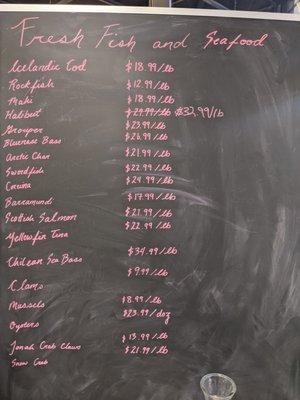 Fresh Fish and Seafood
Icelandic Cod $18.99/lb
Rockfish $12.99/lb
Mahi $18.99/lb
Halibut $29.99/lb $32.99/lb
Grouper $23.99/lb
Bluenose Bass $26.99/lb
Arctic Char $21.99/lb
Swordfish $22.99/lb
Corvina $24.99/lb
Barramundi $17.99/lb
Scottish Salmon $21.99/lb
Yellowfin Tuna $22.99/lb
Chilean Sea Bass $34.99/lb
Clams $9.99/lb
Mussels $8.99/lb
Oysters $23.99/doz
Jonah Crab Claws $13.99/lb
Snow Crab $21.99/lb